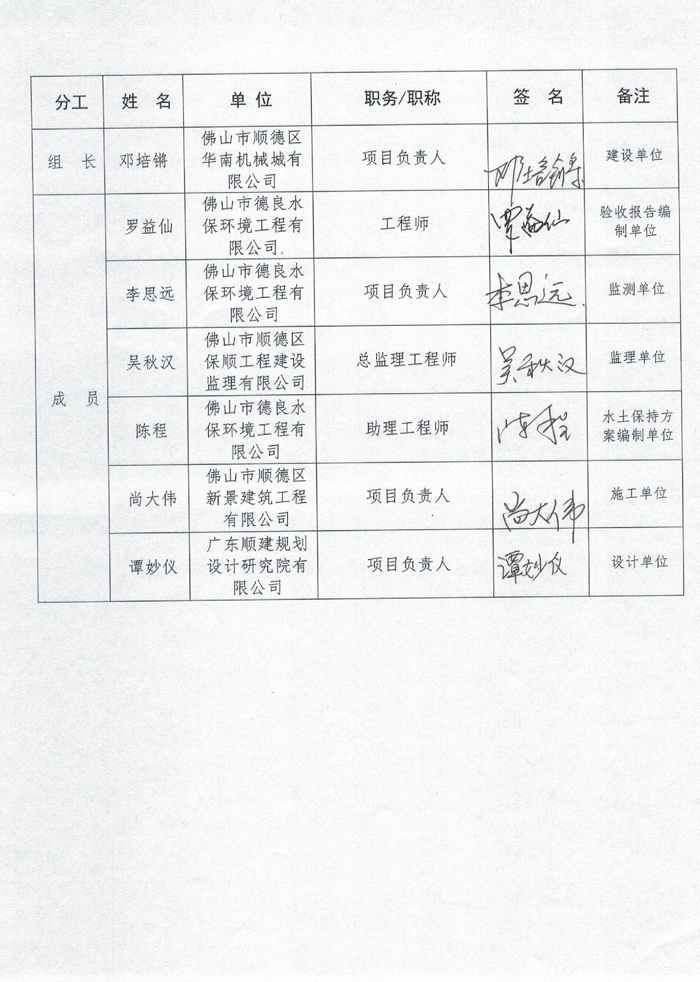 分工 姓 名 单 位 职务/职称 签 名 备注
组 长 邓培锵 佛山市顺德区华南机械城有限公司 项目负责人 邓培锵 建设单位
成 员
罗益仙 佛山市德良水保环境工程有限公司. 工程师 罗益仙 验收报告编制单位
李思远 佛山市德良水保环境工程有限公司 项目负责人 李思远 监测单位
吴秋汉 佛山市顺德区保顺工程建设监理有限公司 总监理工程师 吴秋汉 监理单位
陈程 佛山市德良水保环境工程有限公司 助理工程师 陈程 水土保持方案编制单位
尚大伟 佛山市顺德区新景建筑工程有限公司 项目负责人 尚大伟 施工单位
谭妙仪 广东顺建规划设计研究院有限公司 项目负责人 谭妙仪 设计单位